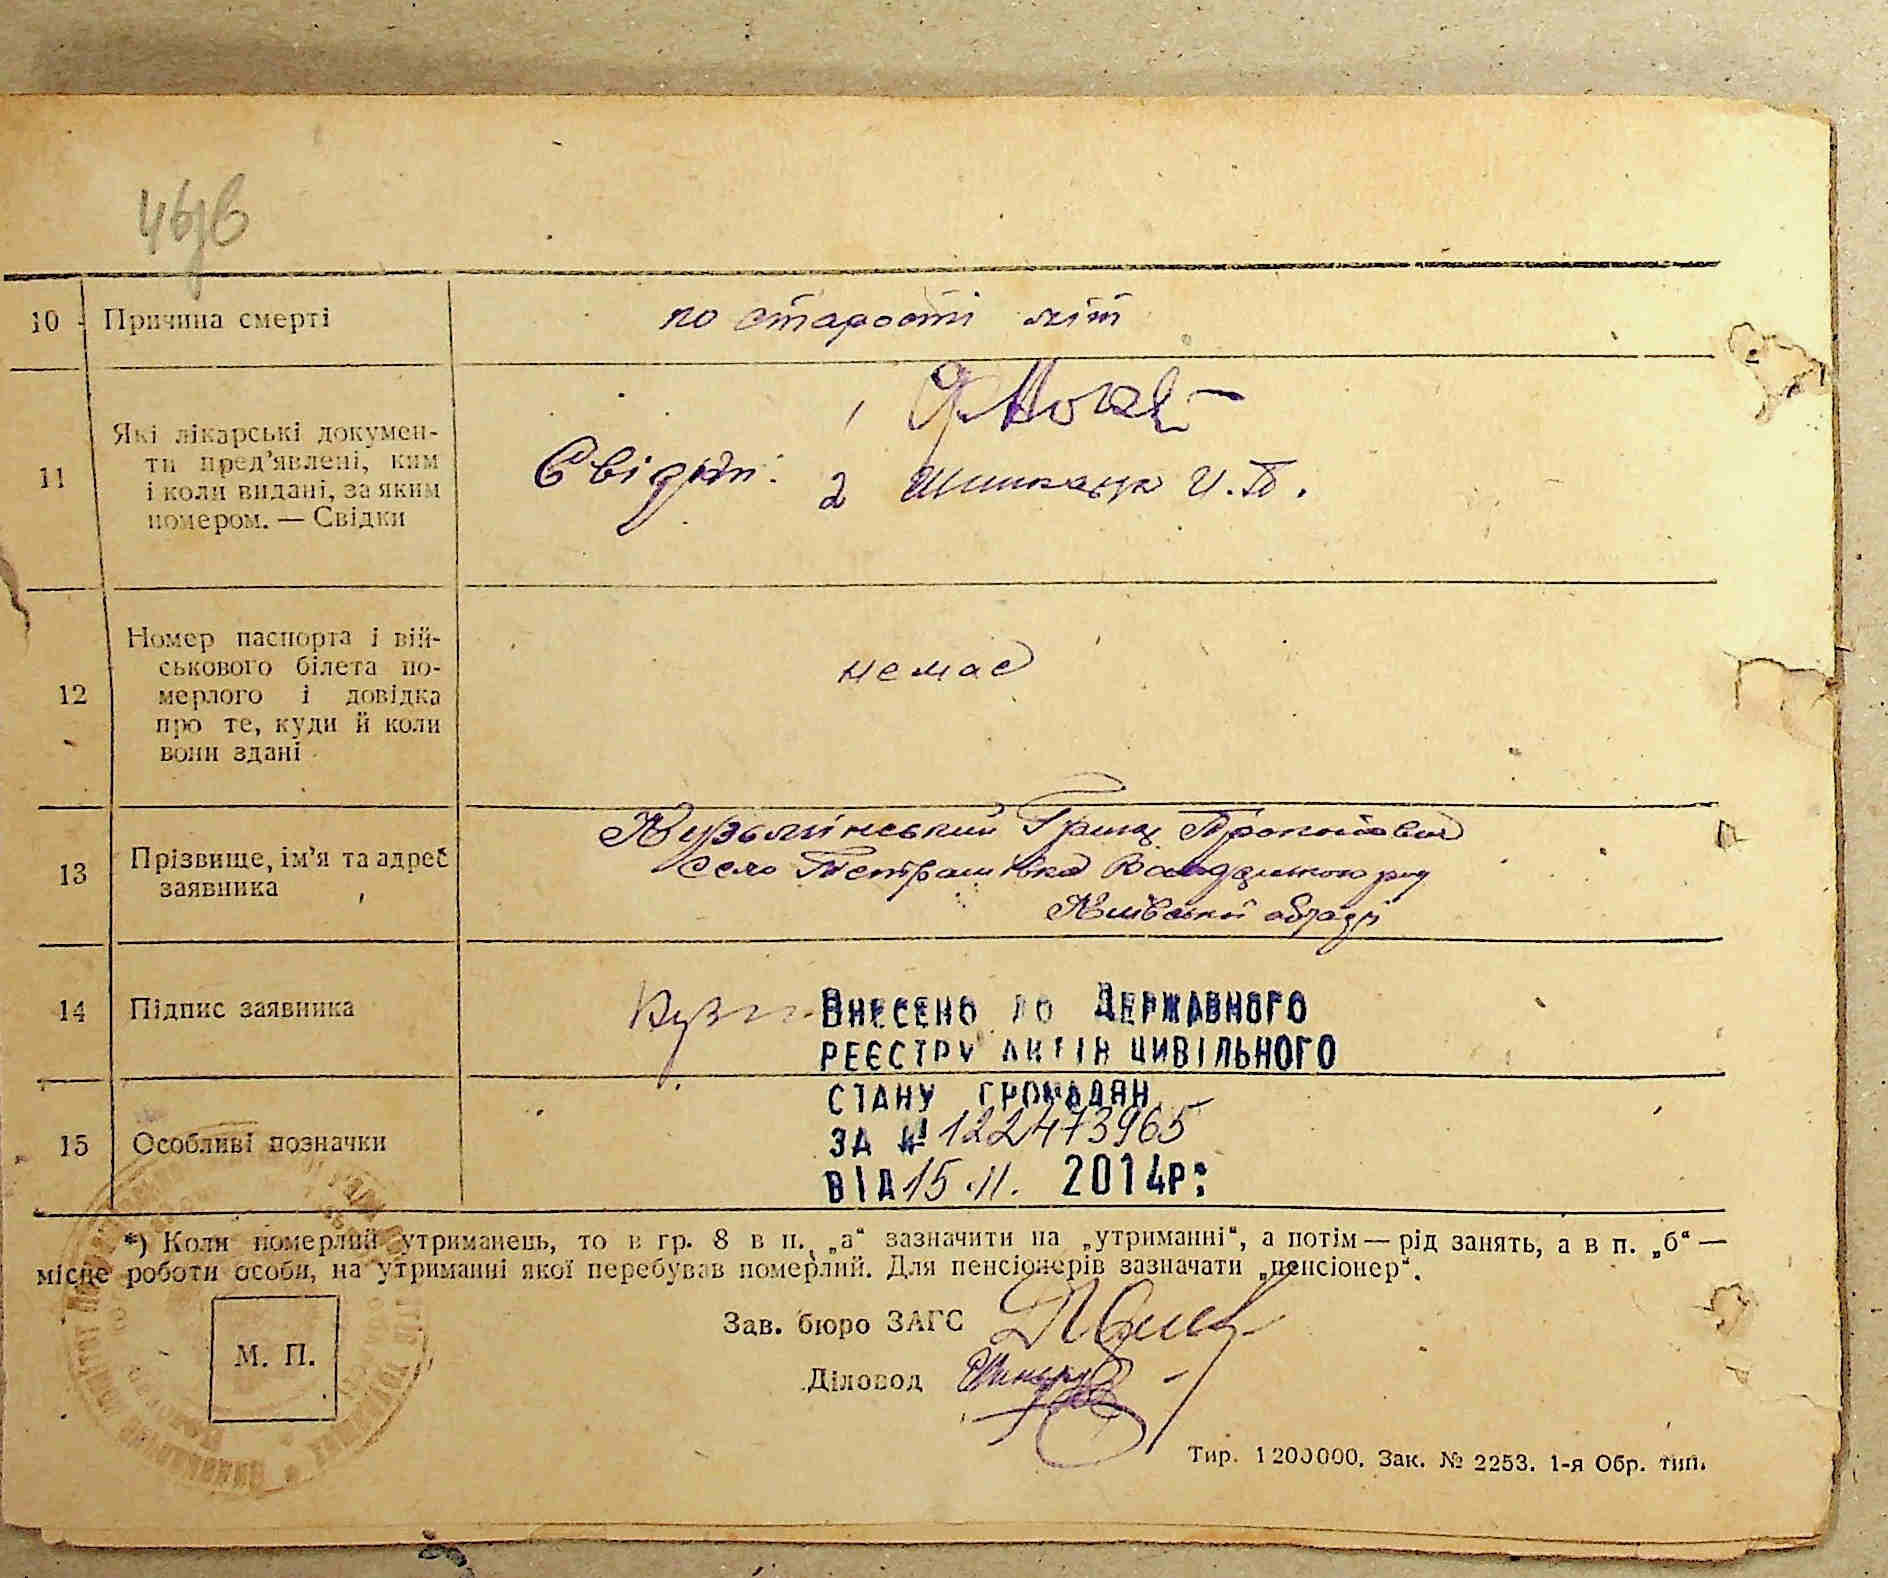 10 Причина смерті
по старості літ
Які лікарські докумен-
ти пред'явлені, ким
11
і коли видані, за яким
номером. — Свідки
Свідки:
2 И. П.
Номер паспорта і вій-
ськового білета по-
12 мерлого і довідка
про те, куди й коли
вони здані
немає
13 Прізвище, ім'я та адреб
заявника
Кузьмінський Гриць Прокопович
село Петрашівка Володарського рну
Київської області
14 Підпис заявника
Кузм
Внесено до Державного
реєстру актів цивільного
стану громадян
за № 122473965
від 15.11. 2014р:
15 Особливі позначки
*) Коли померлий утриманець, то в гр. 8 в п. „а“ зазначити на „утриманні“, а потім — рід занять, а в п. „б“ —
місце роботи особи, на утриманні якої перебував померлий. Для пенсіонерів зазначати „пенсіонер“.
Зав. бюро ЗАГС
М. П.
Діловод
Тир. 1200000. Зак. № 2253. 1-я Обр. тип.